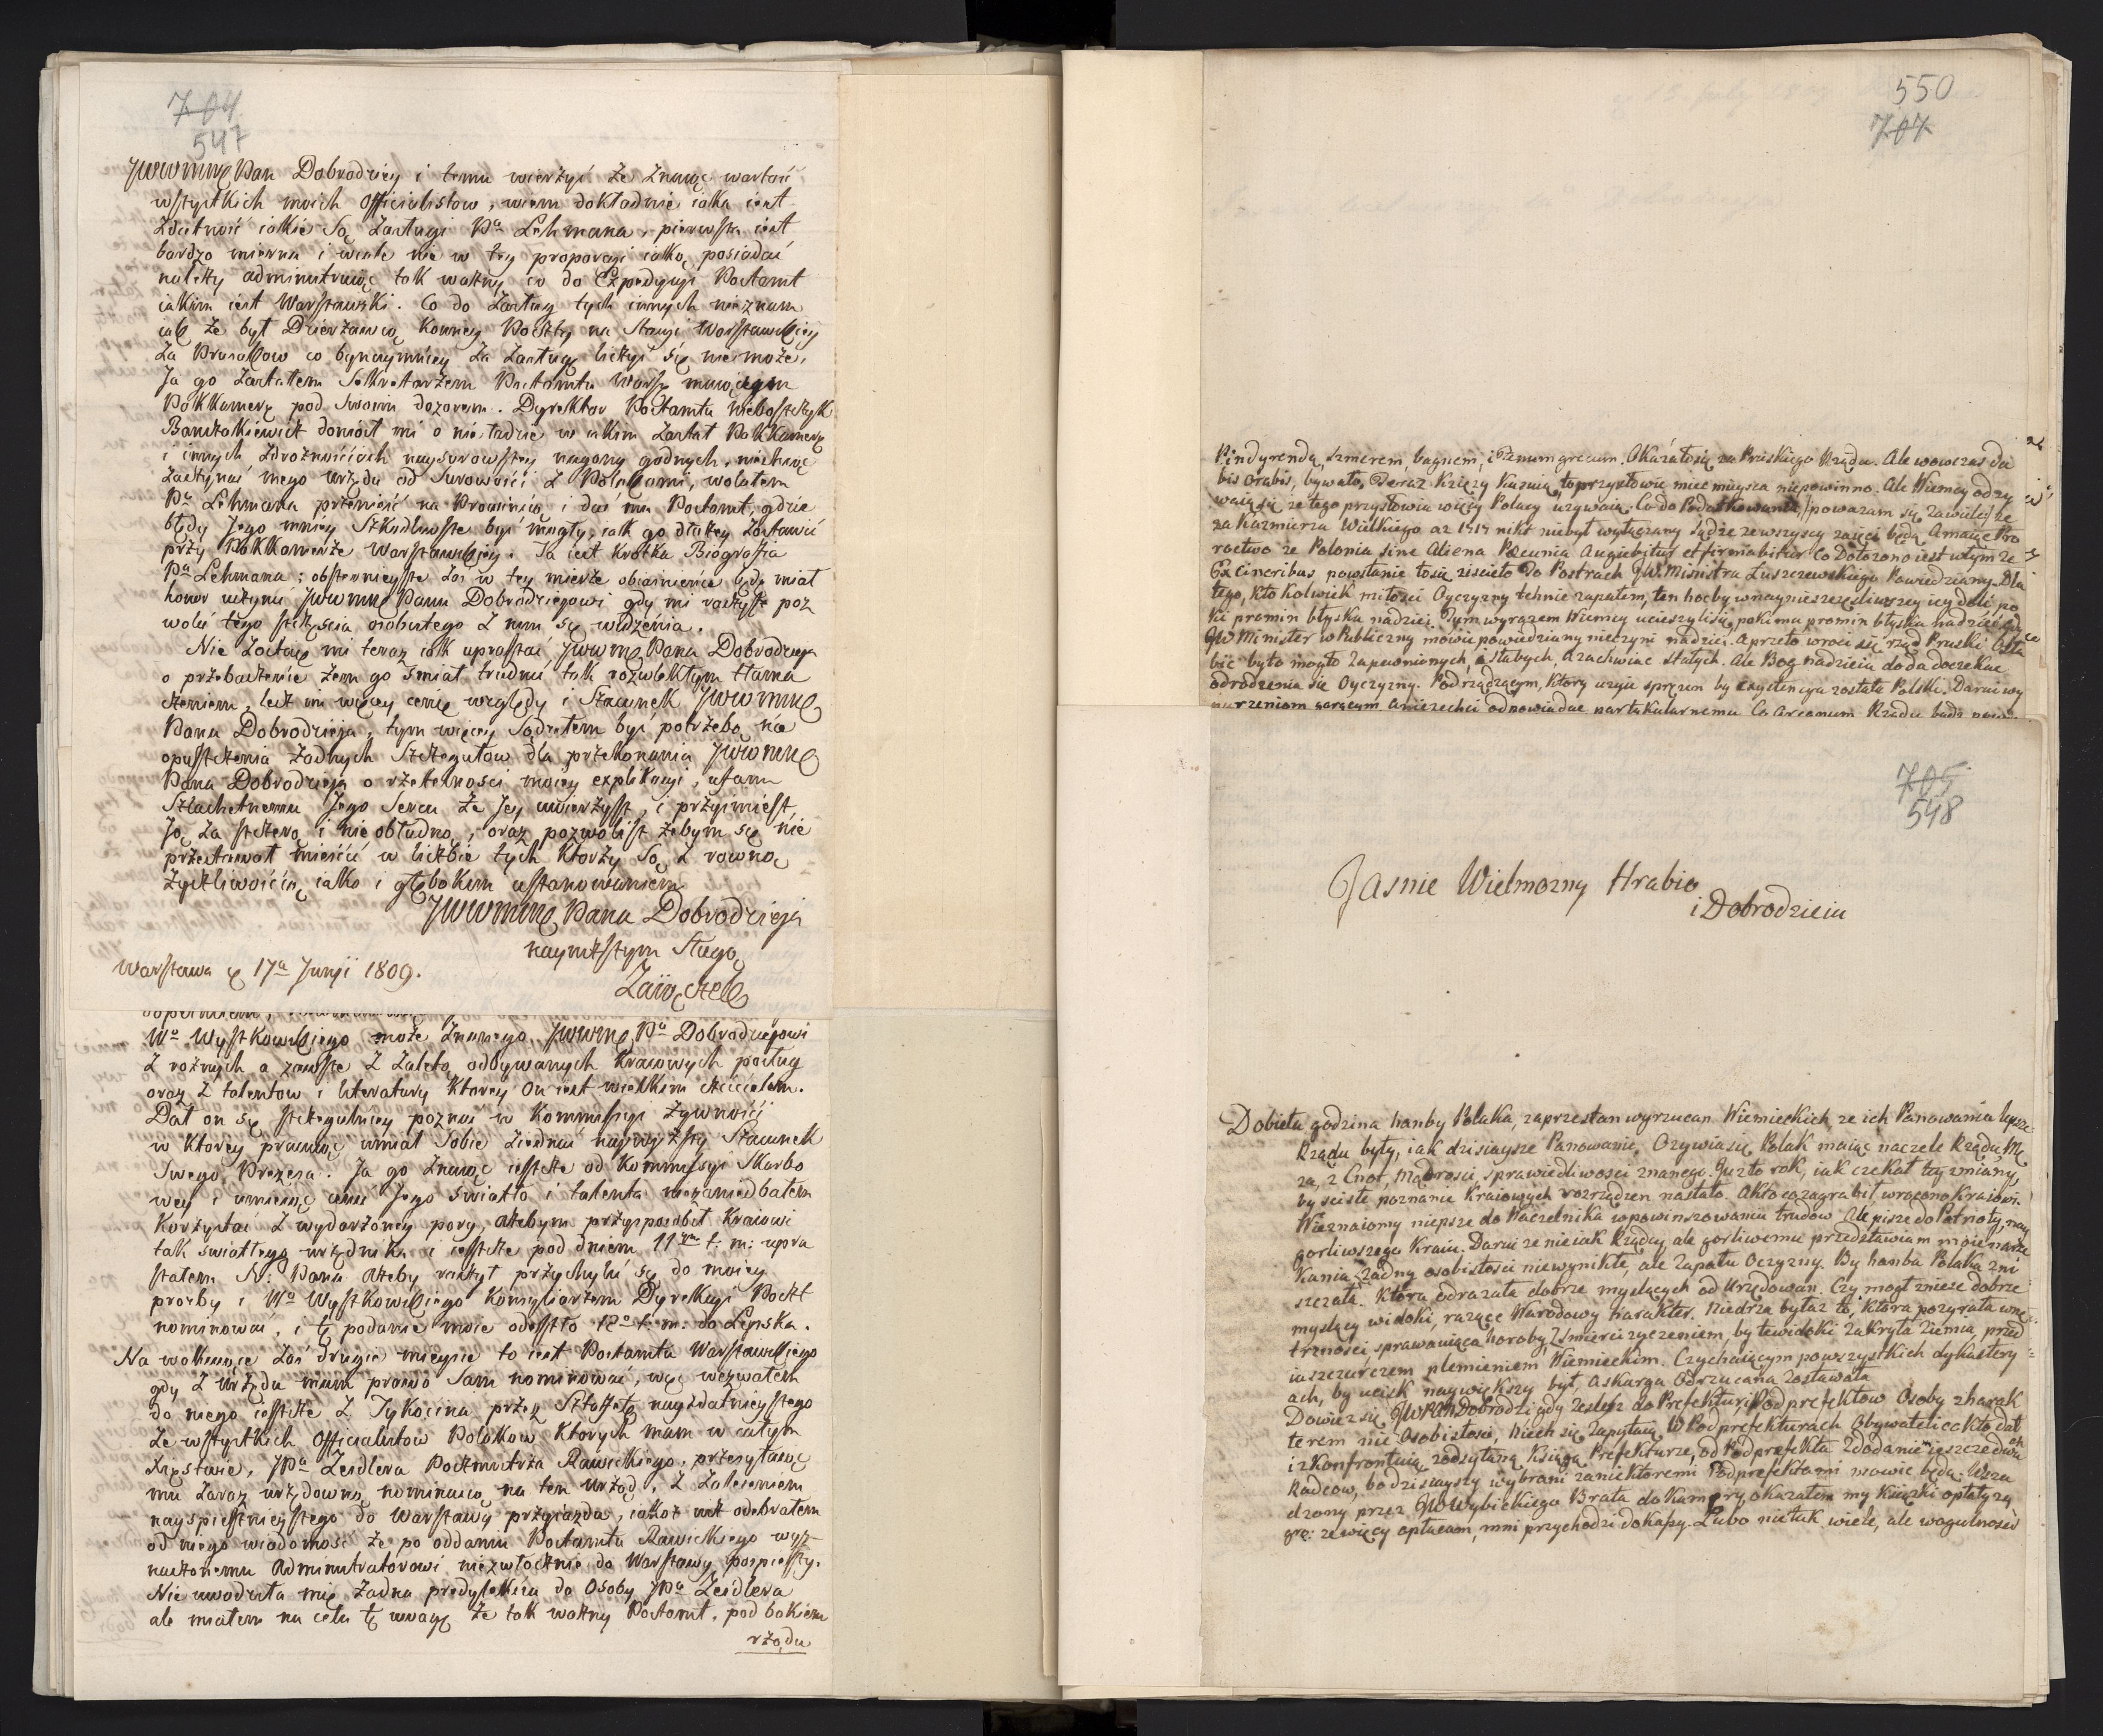 704
547
JWWMne Pan Dobrodziey i temu wierzyć że znaiąc wartość
wszystkich moich Officialistow, wiem dokładnie iaka iest
zdatność iakie są zasługi Pa Lehmana, pierwsza iest
bardzo mierna i wcale nie w tey proporcyi iaką posiadać
należy administruiąc tak ważny co do Expedycyi Postamt
iakim iest Warszawski. Co do zasług tych innych nieznam
iak że był Dzierżawcą konney Poczty na Stacyi Warszawskiey
za Prusakow co bynaymniey za zasługę liczyć się nie może,
Ja go zastałem Sekretarzem Postamtu Warsz: maiącym
Pakkamerę pod swoim dozorem. Dyrektor Postamtu nieboszczyk
doniosł mi o nieładzie w iakim zastał Pakkamerę
i innych zdrożnościach naysurowszey nagany godnych, niechcąc
zaczynać mego urzędu od surowości z Polakami, wolałem
Pa Lehmana przenieść na Prowincią i dać mu Postamt, gdzie
błędy Jego mniey szkodliwsze być mogły, iak go dłużey zostawić
przy Pakkamerze Warszawskiey. Ta iest krotka Biografia
Pa Lehmana; obszernieysze zaś w tey mierze obiaśnienie będę miał
honor uczynić JWWMne Panu Dobrodziejowi gdy mi raczysz poz
wolić tego szczęścia osobistego z nim się widzenia.
Nie zostaie mi teraz iak upraszać JWWMne Pana Dobrodzieja
o przebaczenie żem go śmiał trudnić tak rozwlekłym tłama
czeniem, lecz im więcey cenię względy i szacunek JWWMne
Pana Dobrodzieja, tym więcey sądziłem być potrzebą nie
opuszczenia żadnych szczegułow dla przekonania JWWMne
Pana Dobrodzieja o rzetelności moiey explikacyi, ufam
Szlachetnemu Jego Sercu że Jey uwierzysz, i przyimiesz
Ją za szczerą i nie obłudną, oraz pozwolisz żebym się nie
przestawał mieścić w liczbie tych ktorzy są z rowną
życzliwością iako i głębokim uszanowaniem
JWWMne Pana Dobrodzieja
nayniższym Sługą
Warszawa d 17a Junii 1809.
Zaiączek
Wo Wyszkowskiego może znanego JWWMne Pa Dobrodziejowi
z rożnych a zawsze z zaletą odbywanych kraiowych posług
oraz z talentow i literatury ktorey on iest wielkim czcicielem.
Dał on się szczegulniey poznać w Kommissyi żywności
w ktorey pracuiąc umiał sobie ziednać naywyższy szacunek
swego Prezesa. Ja go znaiąc ieszcze od Kommissyi Skarbo
wey i umieiąc cenić Jego światło i talenta niezaniedbałem
korzystać z wydarzoney pory, ażebym przysposobił kraiowi
tak światłego urzędnika i ieszcze pod dniem 11 t. m: upra
szałem Pana ażeby raczył przychylić się do moiey
prozby i Wo Wyszkowskiego Konsyliarzem Dyrekcyi Poczt
nominować, i tę podanie moie odeszło 12o t. m: do Lipska.
Na wakuiące zaś drugie mieysce to iest Postamtu Warszawskiego
gdy z urzędu mam prawo sam nominować, więc wezwałem
do niego ieszcze z Tykocina przez Sztafetę nayzdatnieyszego
ze wszystkich Officialistow Polakow ktorych mam w całym
Xięstwie, JPa Zeidlera Poczmistrza Rawickiego, przesyłaiąc
mu zaraz urzędową nominacią na ten urząd, z zaleceniem
nayspiesznieyszego do Warszawy przyiazdu, iakoż już odebrałem
od niego wiadomość że po oddaniu Postamtu Rawickiego wyz-
naczonemu Administratorowi niezwłocznie do Warszawy pospieszy.
Nie uwodziła mię żadna predylekcia do Osoby JPa Zeidlera
ale miałem na celu tę uwagę że tak ważny Postamt, pod bokiem
rządu
550
707
Pindyrendą, szmerem, bagnem, i Panum grecum. Okazało się za Pruskiego Rządu. Ale wowczas da
bis orabis, bywało, Teraz Xzięzy Kaznią, to przysłowie miec mieysca niepowinno. Ale Niemcy odzy
waią się ze tego przysłowia więcy Polacy uzywaią. Co do Podatkowania / powazam się Zawiley ze
za Kazmierza Wielkiego az nikt niebył wyłączany sądze ze wszyscy zaięci będą Amaiąc Pro
roctwo ze Polonia sine Aliena Pecunia Augiebitur et firmabitur Co Dołozono iest w tym ze
Ex Cineribus powstanie to się zisciło Do Postrach JW. Ministra Łuszczewskiego Powiedziany. Dla
tego, Kto kolwiek miłosci Oyczyzny tchnie zapałem, ten hocby w naynieszczęsliwszey iey doli po
ki promin błyska nadziei. Tym wyrazem Niemcy ucieszyli się, poki ma promin błyska nadziei
JW Minister w Publiczny mowie powiedziany nieczyni nadziei. a przeto wroci się rząd Pruski Osła
bic było mogło Zapewnionych, i słabych, a zachwiac stałych. Ale Bog nadzieia doda doczekac
odrodzenia się Oyczyzny. Pod rządzącym, Ktory uzyie sprezun by exystencya została Polski. Daruiwy
705
548
Jasnie Wielmozny Hrabio
i Dobrodzieiu
Dobiła godzina hanby Polaka, zaprzestan wyrzucan Niemieckich ze ich Panowania lepsze
Rządu były, iak dzisiaysze Panowanie. Ozywia się Polak maiąc naczele Rządu Mę
za, z Cnot, Mądrosci, sprawiedliwosci znanego. Juz to rok, iak czekał tey zmiany,
by sciste poznanie Kraiowych rozrządzen nastało. A kto co zagrabił wrocono Kraiowi.
Nieznaiomy niepsze do Naczelnika w powinszowaniu trudow Ale pisze do Patrioty, nay
gorliwszego Kraiu. Daruj ze nie iak Rządcy ale gorliwemu przedstawiam moie narze
kania, żadny osobistosci niewynikłe, ale Zapału Oczyzny. By hanba Polaka zni
szczała. Ktora odrazała dobrze myslących od Urzędowan. Czy mogł znieść dobrze
myslący widoki, razące Narodowy harakter. Niedrza byłaz to, ktora pozyrała wnę
trznosci, sprawuiąca horoby, z smierci zyczeniem, by te widoki Zakryła Ziemia, przed
iaszczurczem plemieniem Niemieckim. Czychaiącym po wszystkich dykastery
ach, by ucisk naywiększy był, a skarga Odrzucana Zostawała
Dowiesz się JW PAn Dobrodzi gdy zeslesz do Prefektur i Podprefektow Osoby z harak
terem nie Osobistosci, niech się zapytaią w Podprefekturach Obywateli co kto dał
i zkonfrontuią zodsyłaną Księgą Prefekturze, od Podprefekta Zdodaniem ieszcze dwoch
Radcow, bo dzisiaysty wybrani za niektoremi Podprefektami mowic będą. Usza
dzony przez JW Wybickiego Brata do Kamery okazałem my Książki opłaty 24
gro: ze więcy opłacam, mni przychodzi do Kassy. Lubo nie tak wiele, ale wogulnosci